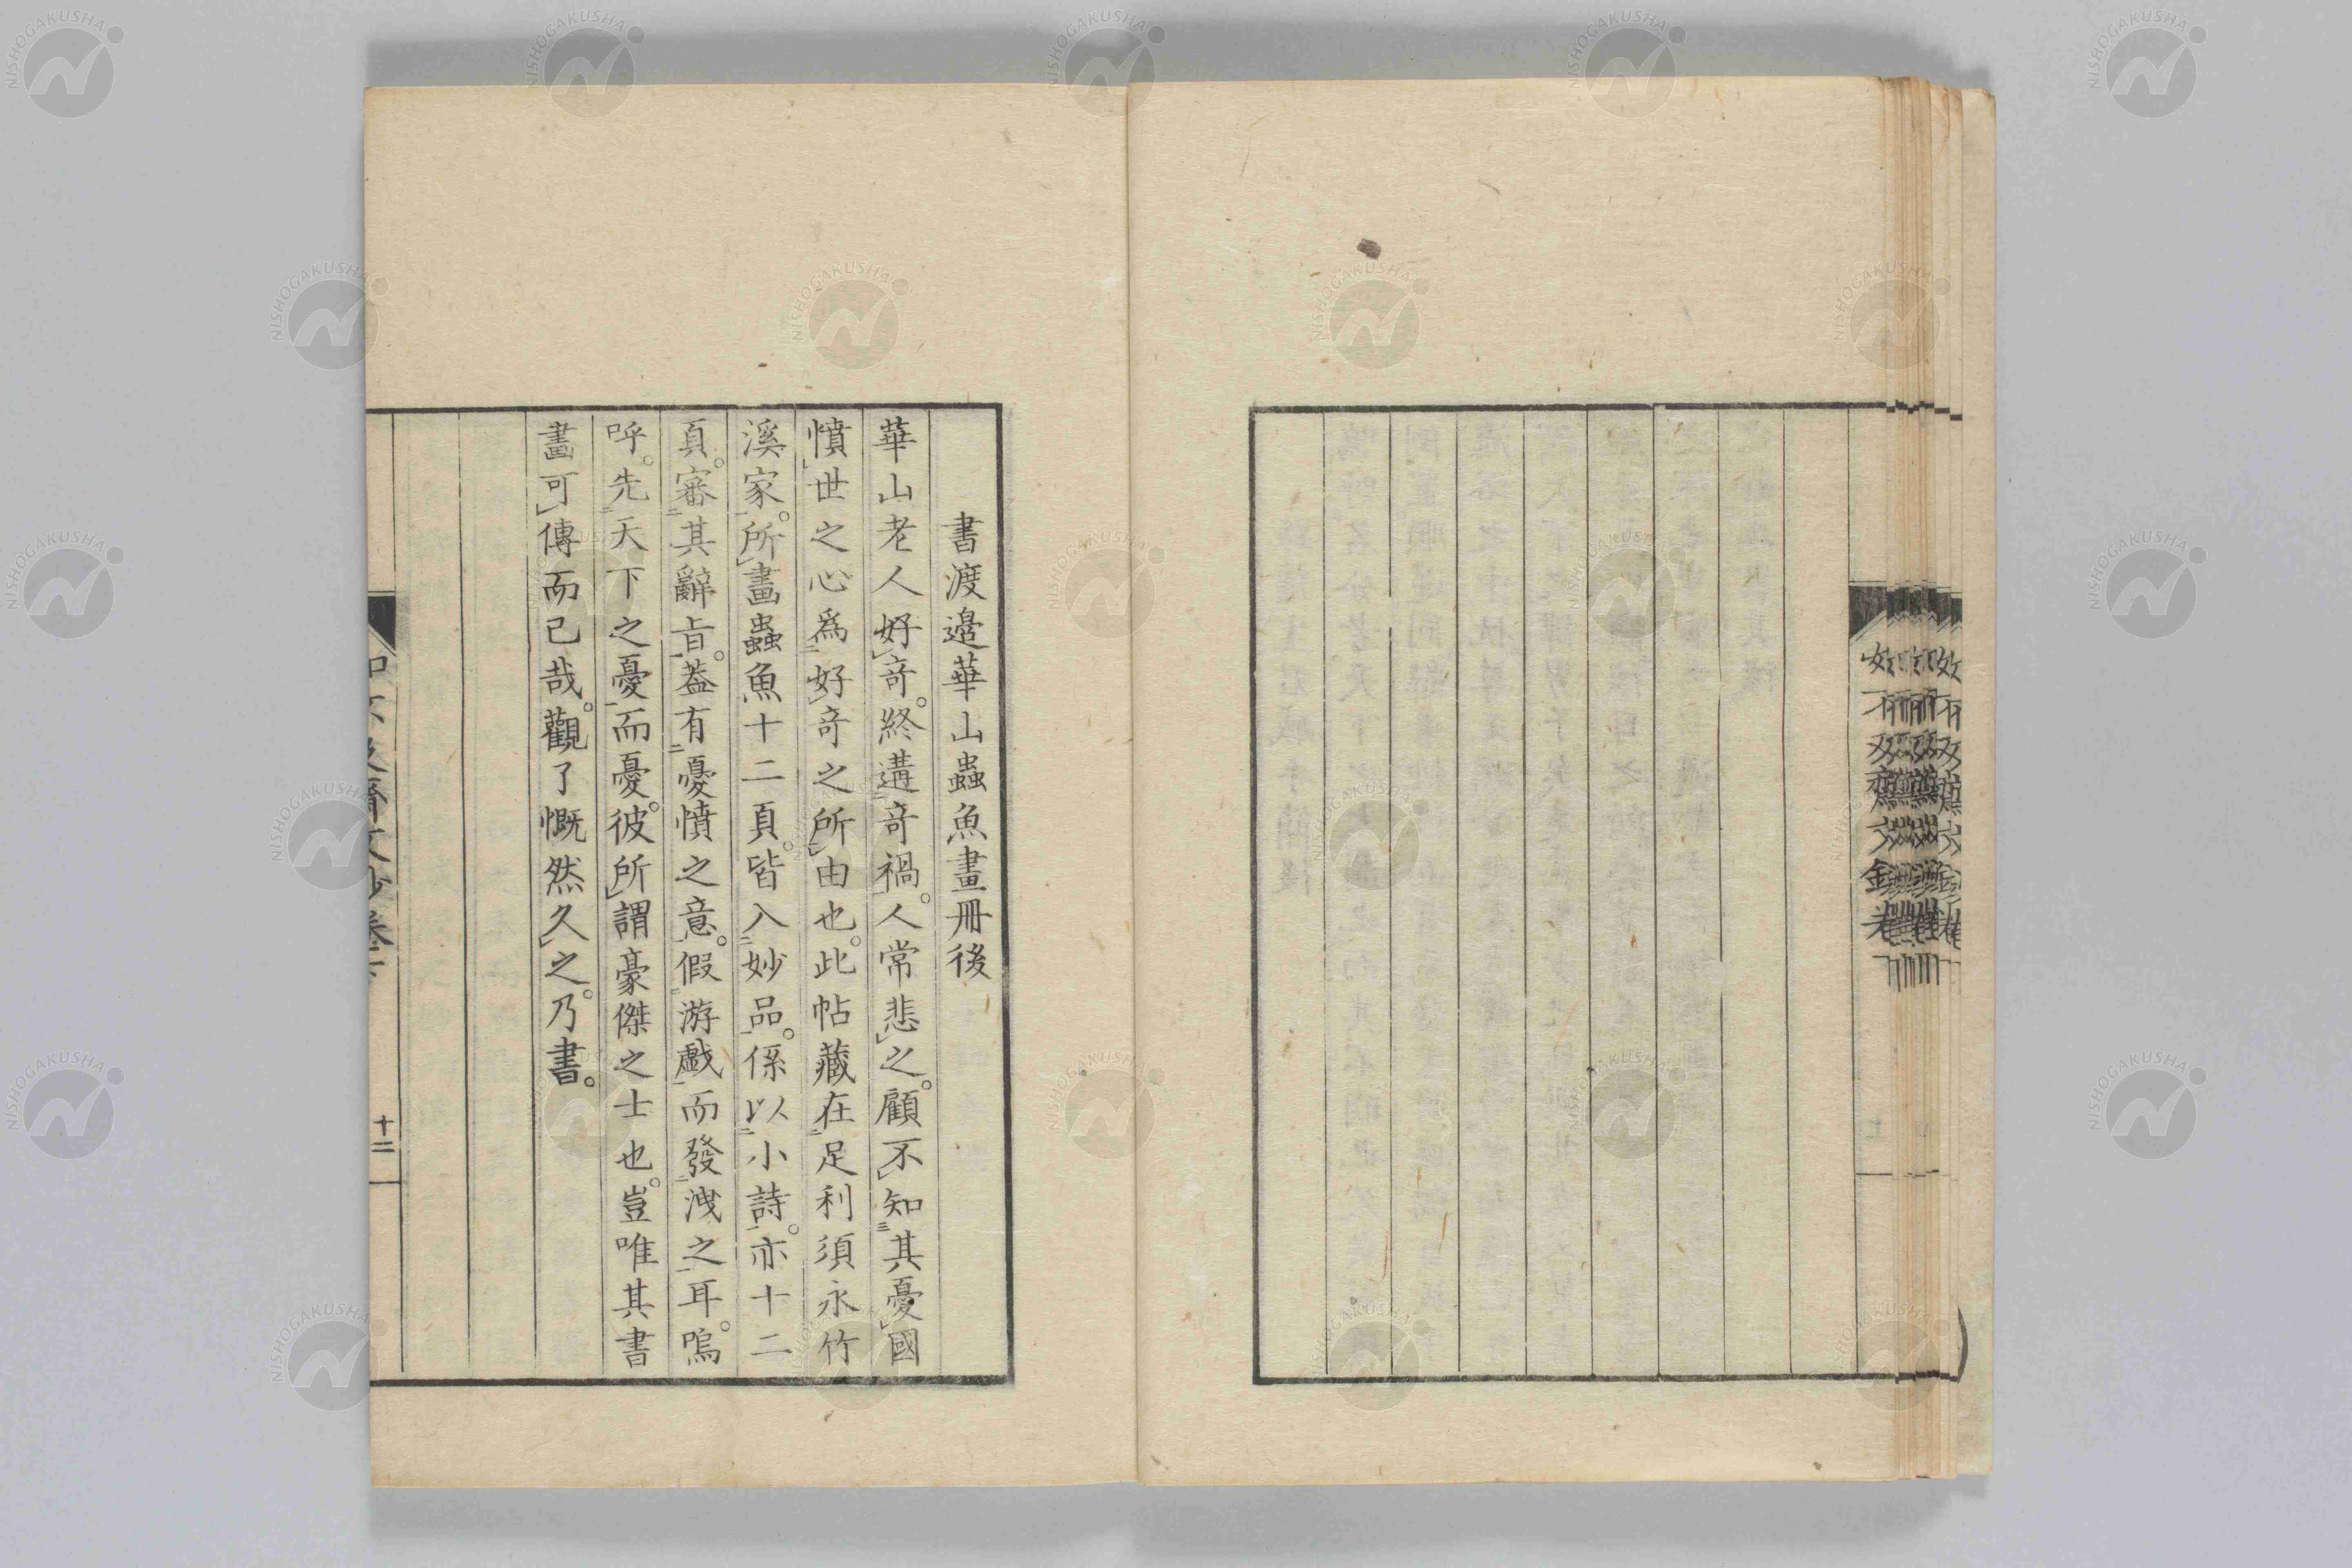 書渡邉華山蟲魚畫冊後
華山老人好竒。終遘竒禍。人常悲之。顧不知其憂國
憤世之心為好竒之所由也。此帖藏在足利須永竹
溪家。所畫蟲魚十二頁。皆入妙品。係以小詩。亦十二
頁。審其辭旨。葢有憂憤之意。假游戯而發洩之耳。嗚
呼。先天下之憂而憂。彼所謂豪傑之士也。豈唯其書
畫可傳而已哉。觀了慨然久之。乃書。
十二
NISHOGAKUSHA